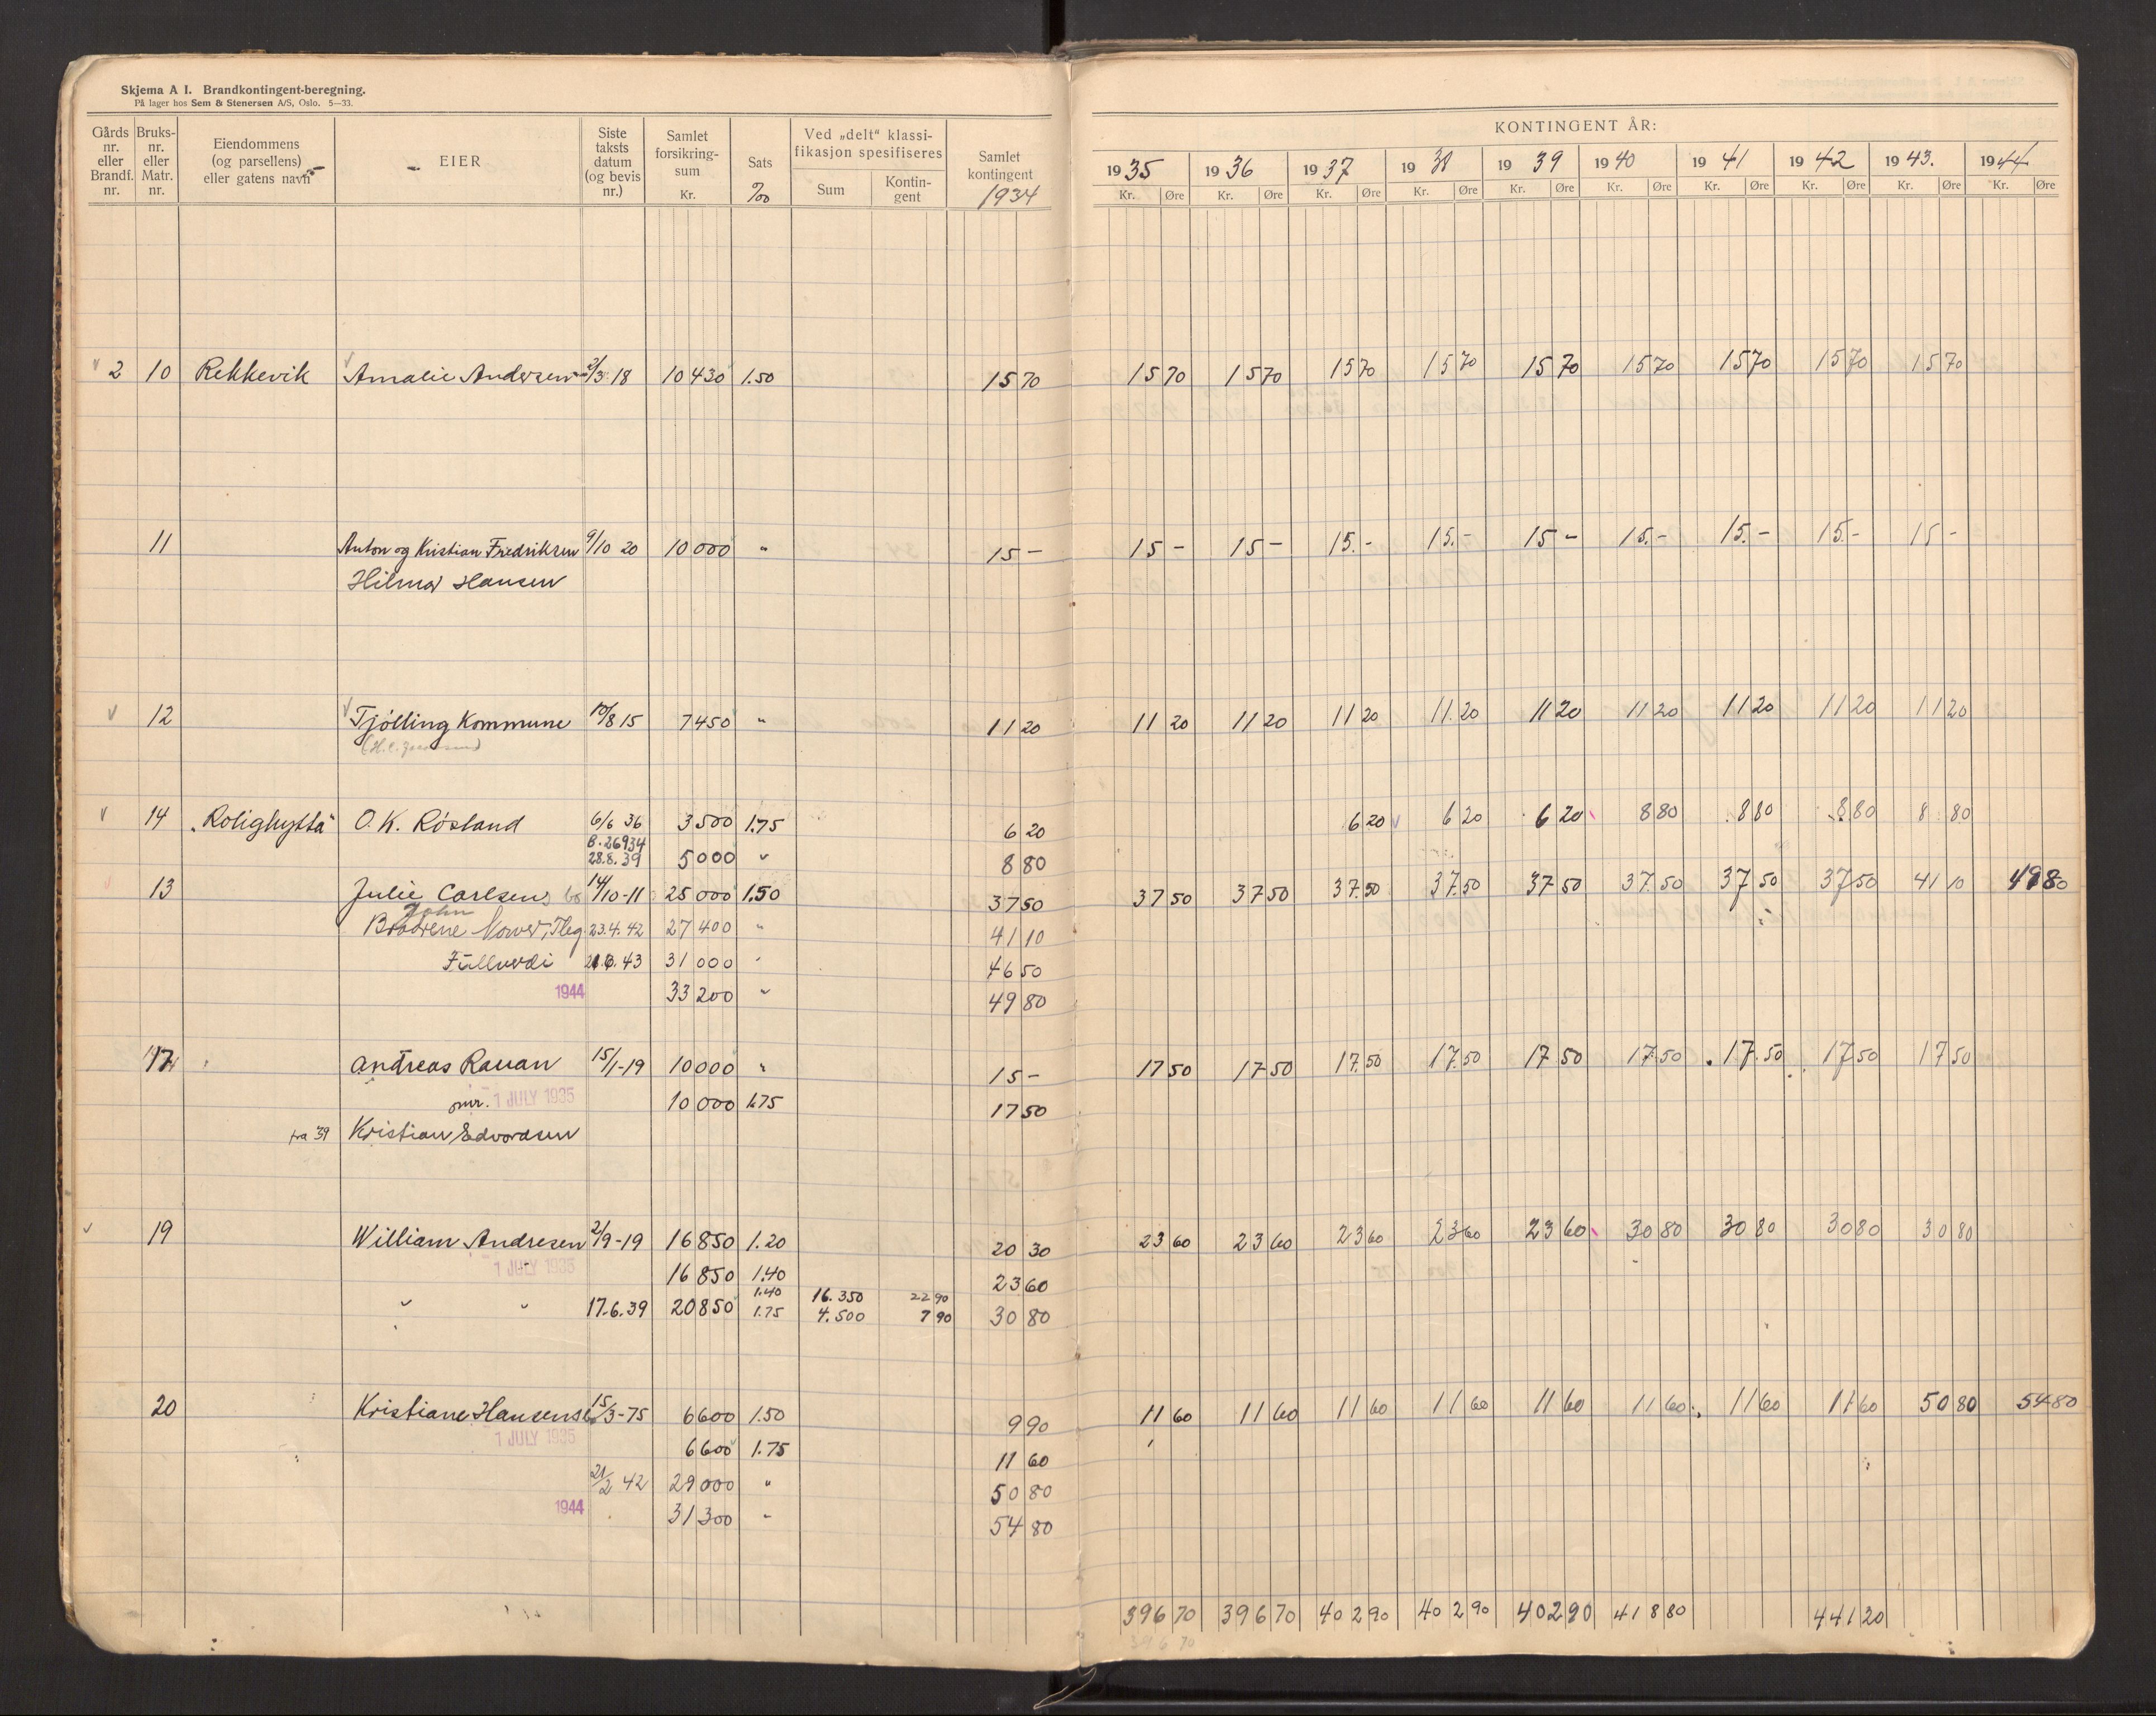 Skjema A I. Brandkontingent-beregning.
På lager hos Sem & Stenersen A/S, Oslo. 5—33.
Gårds nr. eller Brandf. nr. | Bruks- nr. eller Matr. nr. | Eiendommens (og parsellens) eller gatens navn | EIER | Siste taksts datum (og bevis nr.) | Samlet forsikring- sum Kr. | Sats ‰ | Ved „delt“ klassi- fikasjon spesifiseres Sum | Kontin- gent | Samlet kontingent 1934
KONTINGENT ÅR:
1935 | 1936 | 1937 | 1938 | 1939 | 1940 | 1941 | 1942 | 1943. | 1944
Kr. Øre | Kr. Øre | Kr. Øre | Kr. Øre | Kr. Øre | Kr. Øre | Kr. Øre | Kr. Øre | Kr. Øre | Kr. Øre
2 10 Rekkevik Amalie Andersen 2/3 18 10 430 1.50 15 70 15 70 15 70 15 70 15 70 15 70 15 70 15 70 15 70 15 70
11 Anton og Kristian Fredriksen 9/10 20 10 000 " 15 - 15 - 15 - 15.- 15.- 15 - 15.- 15.- 15.- 15 -
Hilmar Hansen
12 Tjölling Kommune 10/8 15 7450 " 11 20 11 20 11 20 11 20 11.20 11 20 11 20 11 20 11 20 11 20
14 „Rolighytta“ O. K. Rösland 6/6 36 3500 1.75 6 20 6 20 6 20 6 20 8 80 8 80 8 80 8 80
B. 26934
28.8.39 5000 " 8 80
13 Julie Carlsens bo 14/10-11 25 000 1.50 37 50 37 50 37 50 37.50 37.50 37 50 37.50 37 50 37 50 41 10 49 80
John
Brødrene 23.4.42 27 400 " 41 10
Fullverdi 21.6.43 31 000 " 46 50
1944 33 200 " 49 80
17 Andreas Rauan 15/1-19 10 000 " 15 - 17 50 17 50 17.50 17.50 17 50 17.50 17.50 17 50 17 50
omr. 1 JULY 1935 10 000 1.75 17 50
fra 39 Kristian Edvardsen
19 William Andresen 2/9-19 16 850 1.20 20 30 23 60 23 60 23 60 23 60 23 60 30 80 30 80 30 80 30 80
1 JULY 1935 16 850 1.40 23 60
" " 17.6.39 20 850 1.40 16.350 22 90
1.75 4.500 7 90 30 80
20 Kristiane Hansens bo 15/3-75 6600 1.50 9 90 11 60 11 60 11 60 11 60 11 60 11 60 11 60 11 60 50 80 54 80
1 JULY 1935 6600 1.75 11 60
21/2 42 29 000 " 50 80
1944 31 300 " 54 80
396 70 396 70 402 90 402 90 402 90 418 80 441 20
396 70